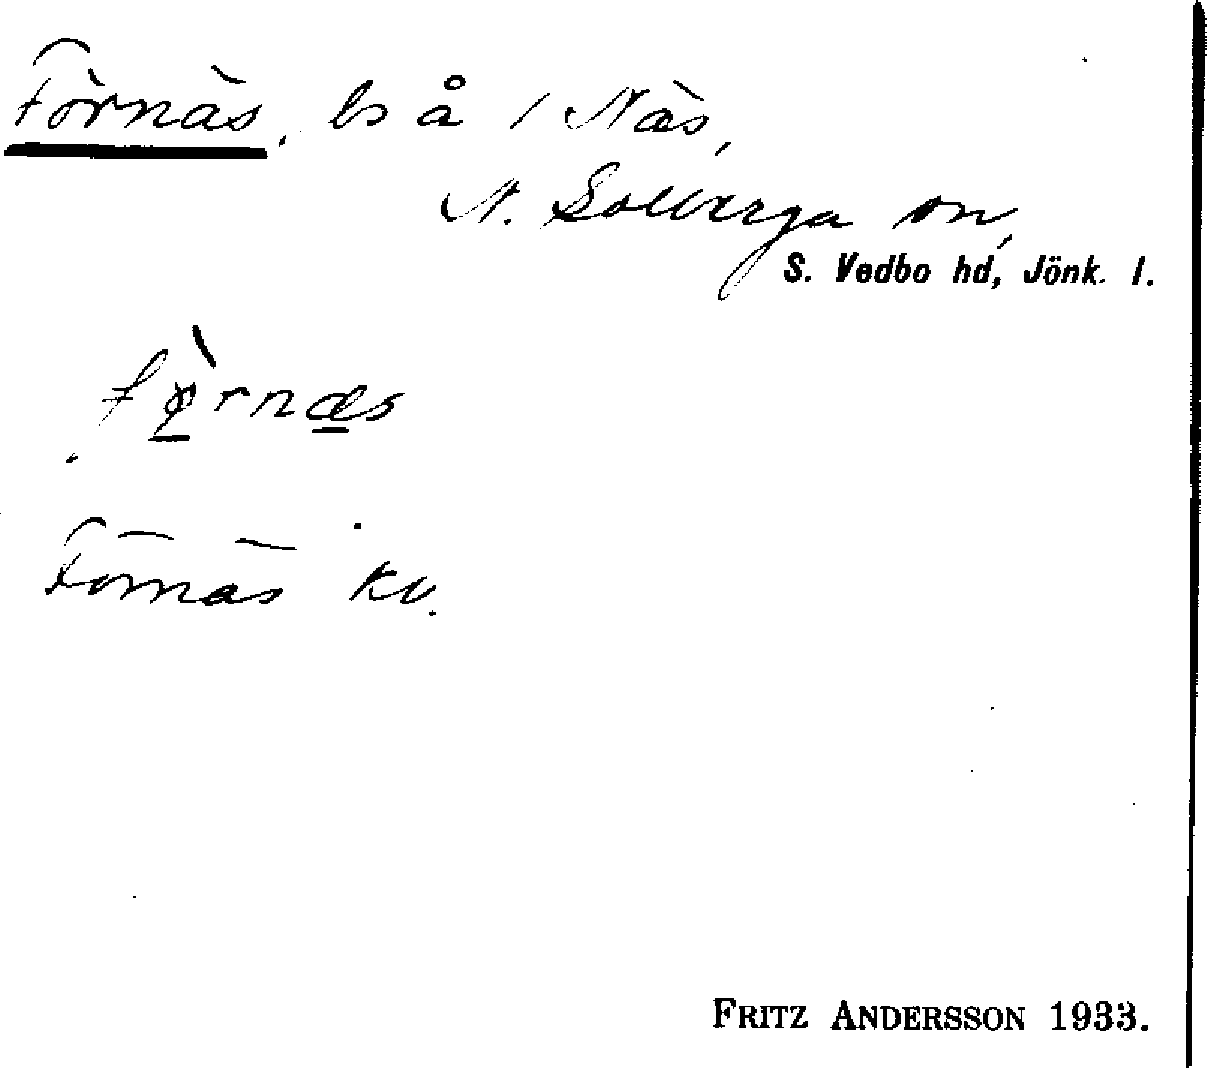 Förnäs, ls å 1 Näs,
N. Solberga sn,
S. Vedbo hd, Jönk. l.
fø̀rnæs
Förnäs kv.
FRITZ ANDERSSON 1933.